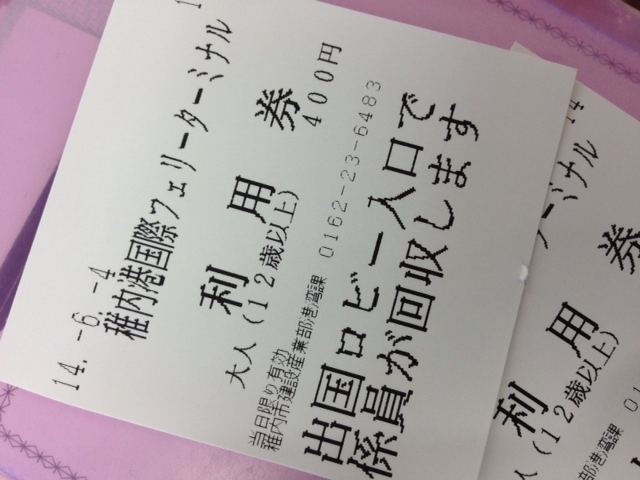 14. -6. -4
稚内港国際フェリーターミナル
利用券
大人(12歳以上) 400円
当日限り有効
稚内市建設産業部港湾課 0162-23-6483
出国ロビー入口で
係員が回収します
14
ーミナル
利用券
大人(12歳以上)